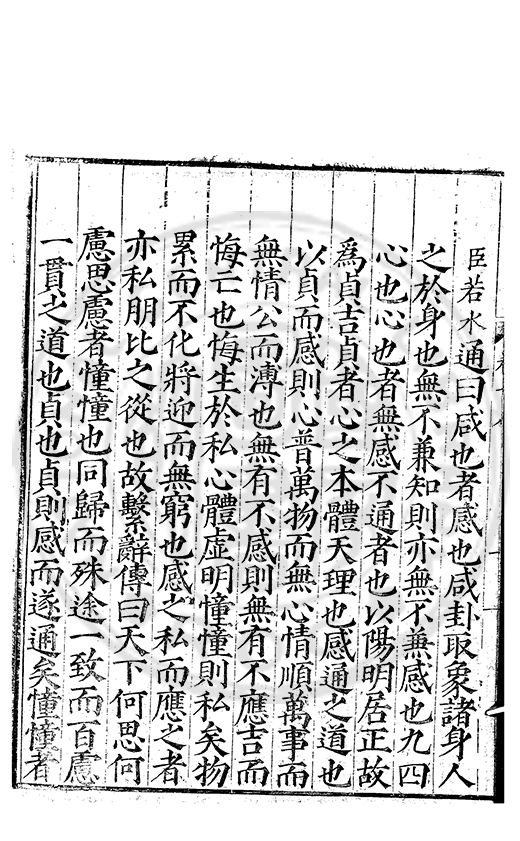 臣若水通曰咸也者感也咸卦取象諸身人
之於身也無不兼知則亦無不兼感也九四
心也心也者無感不通者也以陽明居正故
爲貞吉貞者心之本體天理也感通之道也
以貞而感則心普萬物而無心情順萬事而
無情公而溥也無有不感則無有不應吉而
悔亡也悔生於私心體虚明憧憧則私矣物
累而不化將迎而無窮也感之私而應之者
亦私朋比之從也故繫辭傳曰天下何思何
慮思慮者憧憧也同歸而殊途一致而百慮
一貫之道也貞也貞則感而遂通矣憧憧者